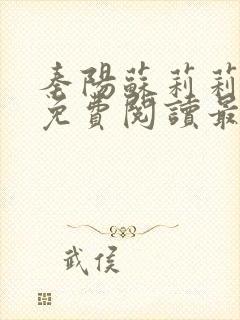 秦陽蘇莉莉
免費閱讀最
武侯